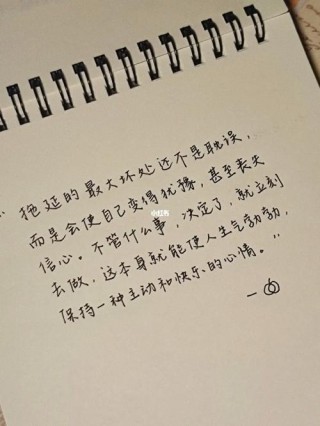 “拖延的最大坏处还不是耽误，
而是会使自己变得犹豫，甚至丧失
信心。不管什么事，决定了，就立刻
去做，这本身就能使人生气勃勃，
保持一种主动和快乐的心情。”
小红书